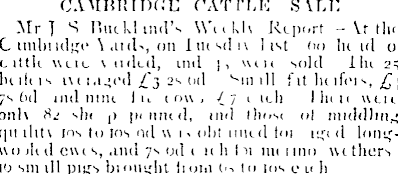 CAMBRIDGE CATTLE SALE
Mr J S Buckland's Weekly Report - At the
Cambridge Yards, on Tuesday last 60 head of
cattle were yarded, and were sold The 25
heifers averaged £3 2s 6d Small fat heifers,
7s 6d and nine fat cows £7 each There were
only 82 sheep penned, and those of middling
quality 10s to 10s 6d was obtained for aged long-
wooled ewes, and 7s 6d each for merino wethers
small pigs brought from 6s to 10s each